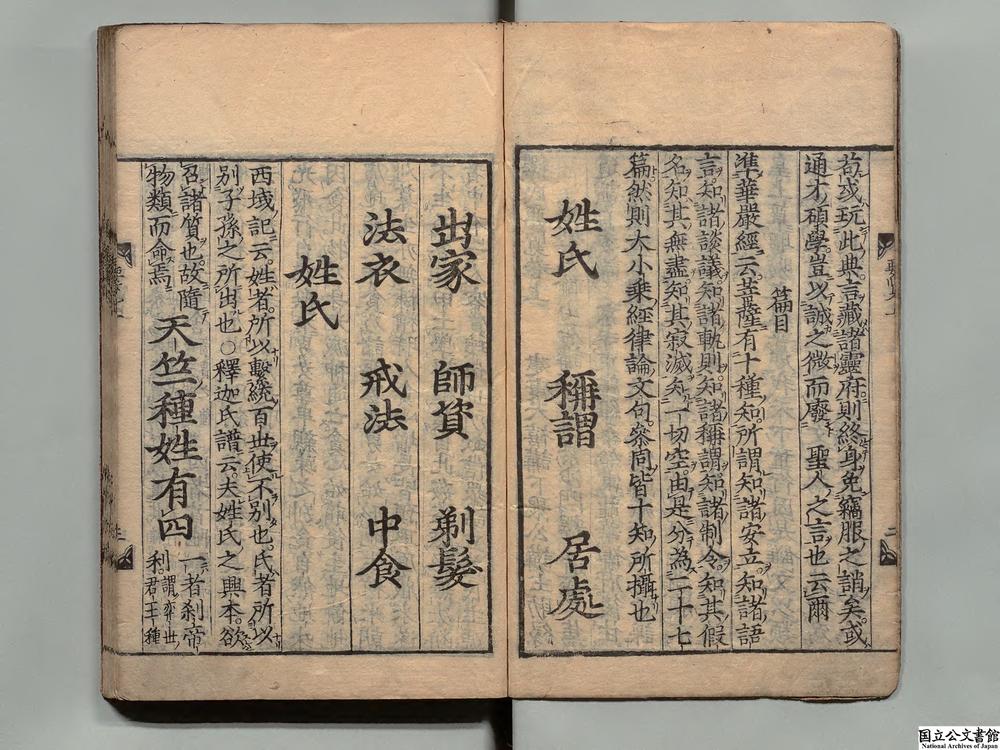 苟或玩此典言藏諸靈府則終身免竊服之誚矣或
通才碩學豈以誠之微而廢　聖人之言也云爾
篇目
準華嚴經云菩薩有十種知所謂知諸安立知諸語
言知諸談議知諸軌則知諸稱謂知諸制令知其假
名知其無盡知其寂滅知一切空由是分為二十七
篇然則大小乘經律論文句叅同皆十知所攝也
姓氏　稱謂　居處
出家　師資　剃髮
法衣　戒法　中食
姓氏
西域記云姓者所以繫統百世使不別也氏者所以
別子孫之所出也○釋迦氏譜云夫姓氏之興本欲
召諸質也故隨
物類而命焉
天竺種姓有四
一者剎帝
利謂弈世
君王種
國立公文書館
National Archives of Japan